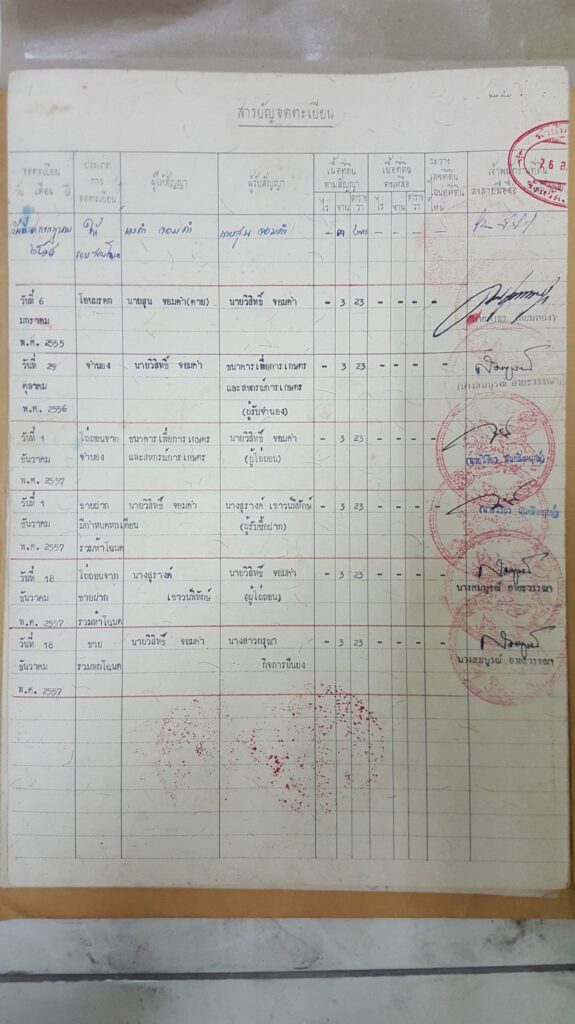 สารบัญจดทะเบียน
จดทะเบียน
วัน เดือน ปี
ประเภท
การ
จดทะเบียน
ผู้ให้สัญญา
ผู้รับสัญญา
เนื้อที่ดิน
ตามสัญญา
ไร่ งาน ตารางวา
เนื้อที่ดิน
คงเหลือ
ไร่ งาน ตารางวา
ระวาง
เลขที่ดิน
โฉนดที่ดิน
ใหม่
เจ้าพนักงานที่ดิน
ลงลายมือชื่อ
26
ให้
จอมคำ
นายสุน จอมคำ
- ๓ ๒๓ - - - -
วันที่ 6
มกราคม
พ.ศ. 2555
โอนมรดก
นายสุน จอมคำ(ตาย)
นายวิสิทธิ์ จอมคำ
- 3 23 - - - -
วันที่ 29
ตุลาคม
พ.ศ. 2556
จำนอง
นายวิสิทธิ์ จอมคำ
ธนาคารเพื่อการเกษตร
และสหกรณ์การเกษตร
(ผู้รับจำนอง)
- 3 23 - - - -
วันที่ 1
ธันวาคม
พ.ศ. 2557
ไถ่ถอนจาก
จำนอง
ธนาคารเพื่อการเกษตร
และสหกรณ์การเกษตร
นายวิสิทธิ์ จอมคำ
(ผู้ไถ่ถอน)
- 3 23 - - - -
วันที่ 1
ธันวาคม
พ.ศ. 2557
ขายฝาก
มีกำหนดหกเดือน
รวมห้าโฉนด
นายวิสิทธิ์ จอมคำ
นางสุรางค์ เชาวนพิทักษ์
(ผู้รับซื้อฝาก)
- 3 23 - - - -
วันที่ 18
ธันวาคม
พ.ศ. 2557
ไถ่ถอนจาก
ขายฝาก
รวมห้าโฉนด
นางสุรางค์
เชาวนพิทักษ์
นายวิสิทธิ์ จอมคำ
(ผู้ไถ่ถอน)
- 3 23 - - - -
นางสมบูรณ์ อายะวรรณา
วันที่ 18
ธันวาคม
พ.ศ. 2557
ขาย
รวมหกโฉนด
นายวิสิทธิ์ จอมคำ
นางสาวกรุณา
กิจการยืนยง
- 3 23 - - - -
นางสมบูรณ์ อายะวรรณา